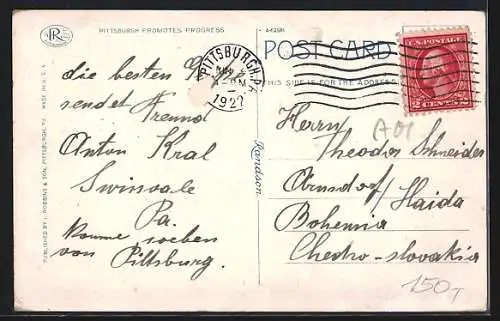 PITTSBURGH PROMOTES PROGRESS
POST CARD
THIS SIDE IS FOR THE ADDRESS
PITTSBURGH, PA.
1927
U.S. POSTAGE
2 CENTS 2
die besten
sendet Freund
Anton Kral
Swissvale
Pa.
komme soeben
von Pittsburg.
Herrn
Theodor Schneider
Arnsdorf / Haida
Bohemia
Checho-slovakia
A01
150T
PUBLISHED BY I. ROBBINS & SON, PITTSBURGH, PA.
MADE IN U.S.A.